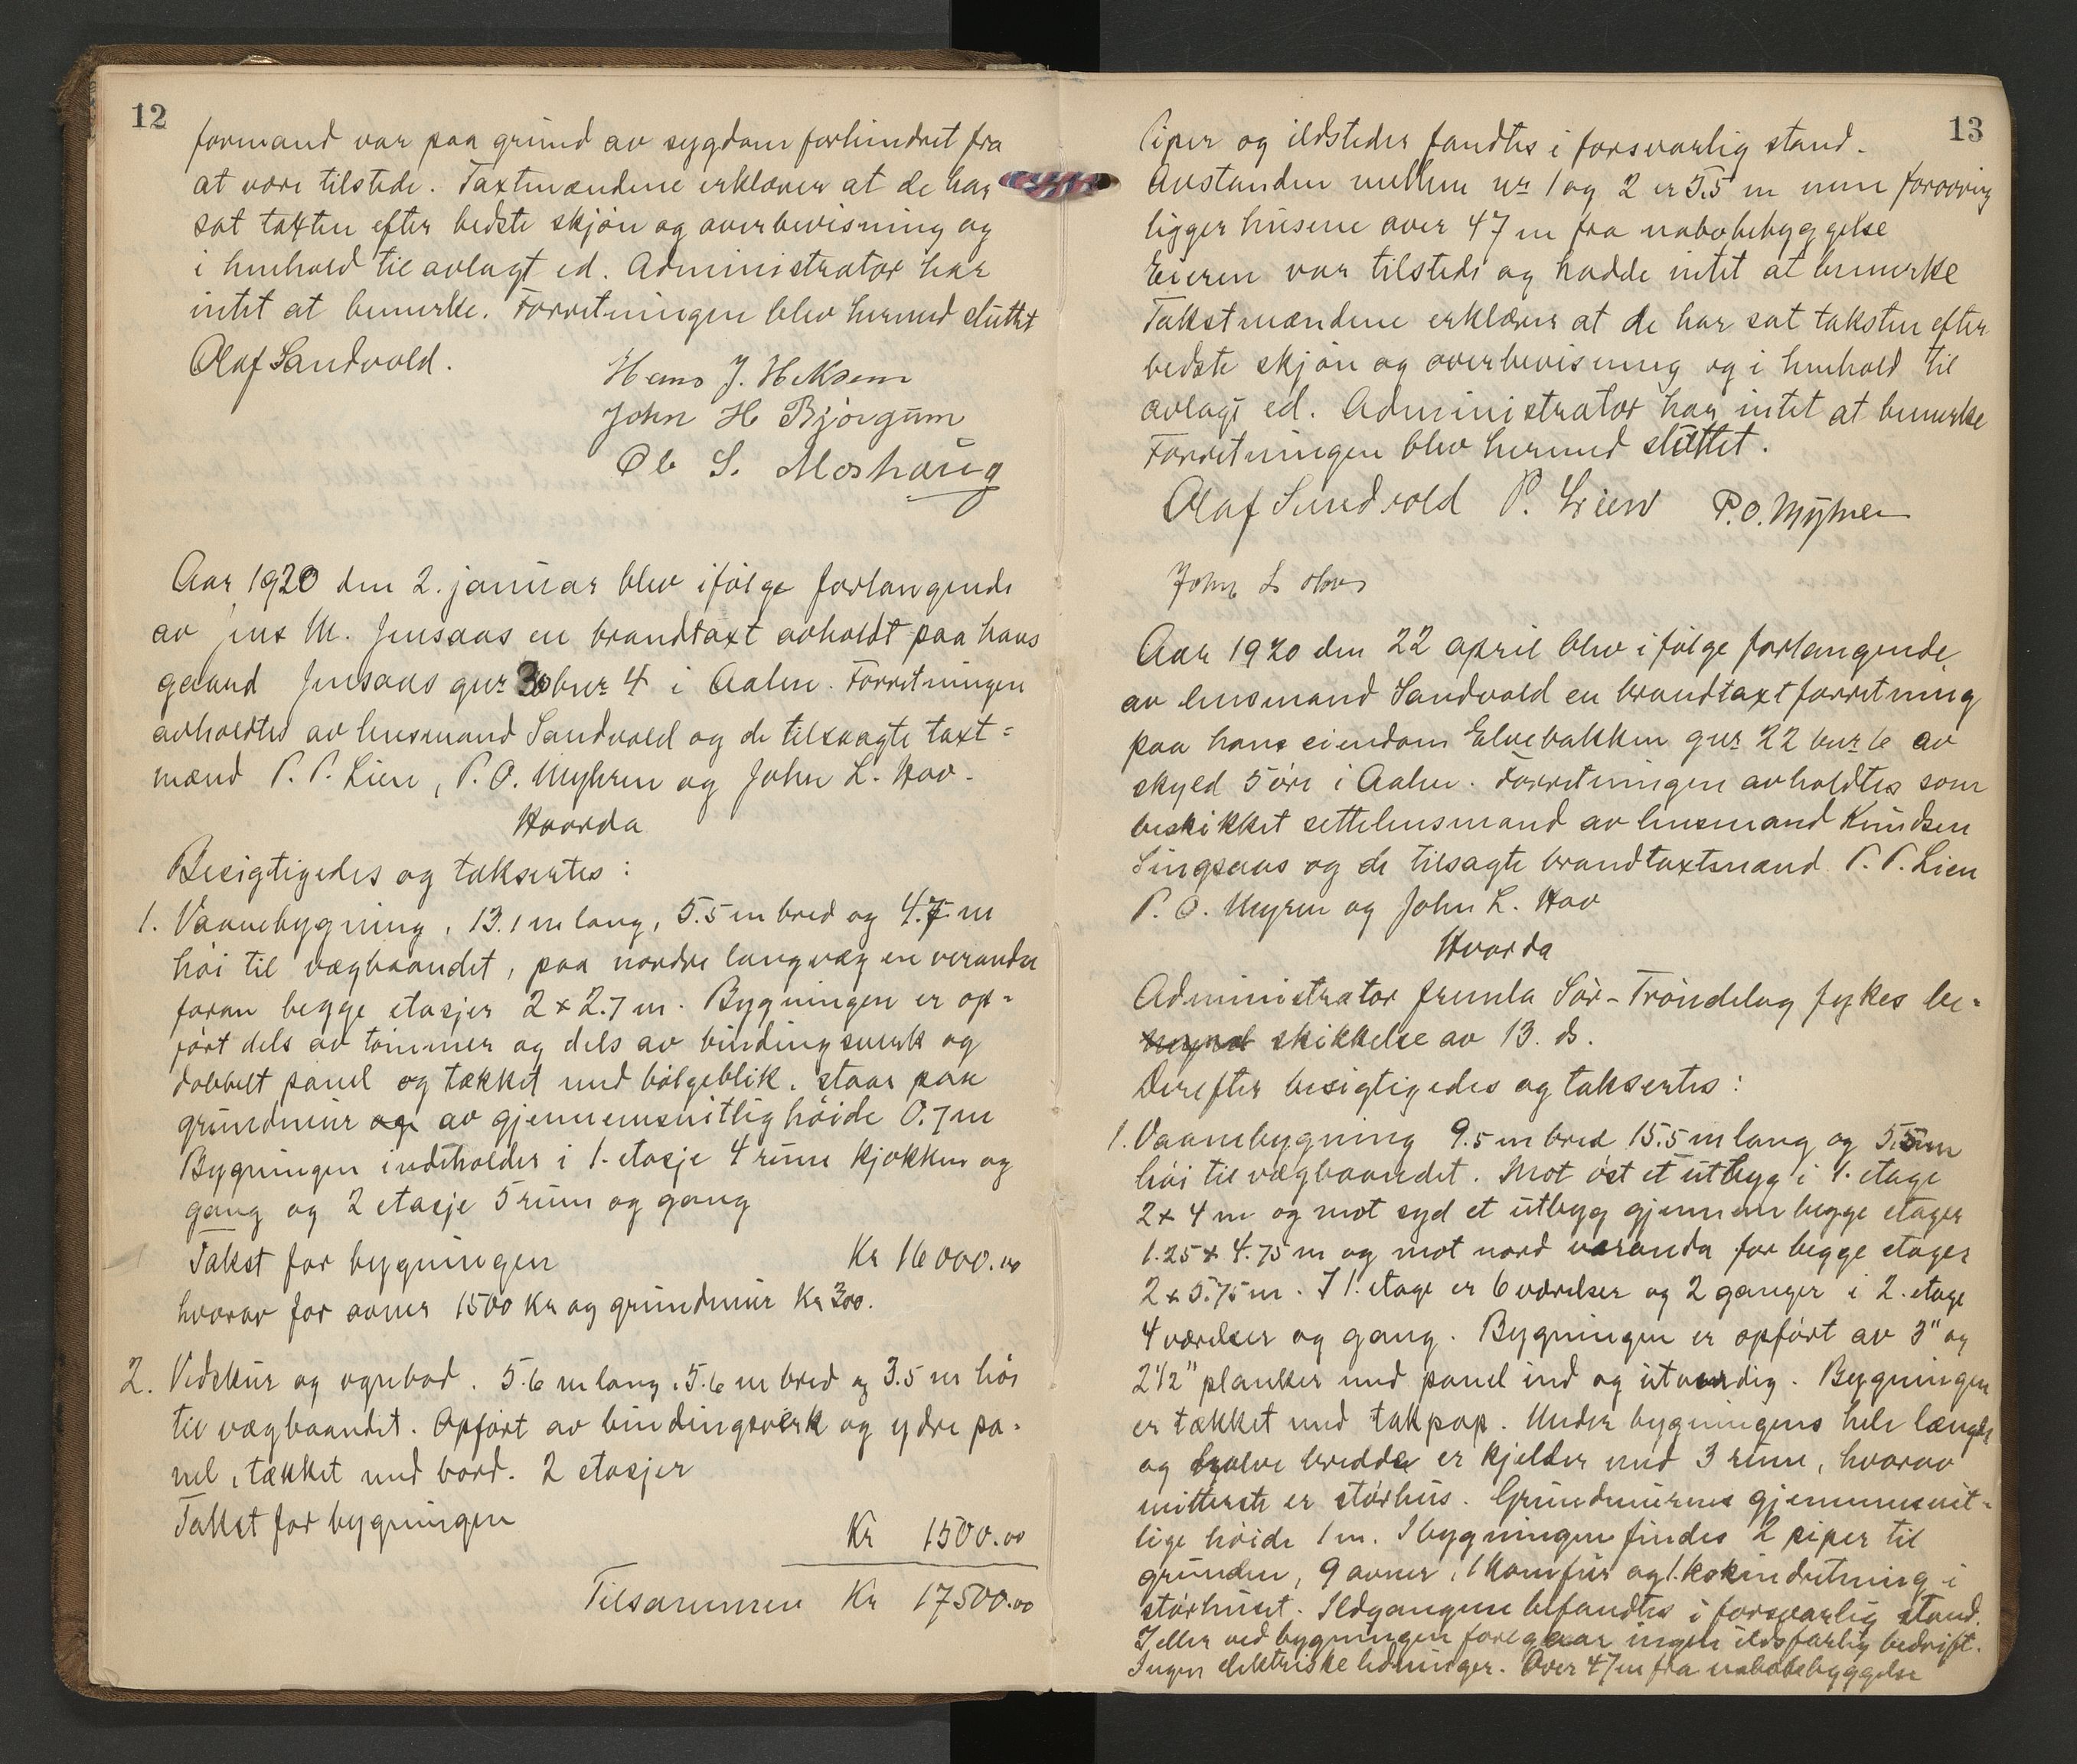 12
formand var paa grund av sygdom forhindret fra
at være tilstede. Taxtmændene erklærer at de har
sat taxten efter bedste skjøn og overbevisning og
i henhold til avlagt ed. Administrator har
intet at bemerke. Forretningen blev hermed sluttet
Olaf Sandvold.
Hans J. Heksem
John H Bjørgum
Ole S. Moshaug
Aar 1920 den 2. januar blev ifølge forlangende
av Jens M. Jensaas en brandtaxt avholdt paa hans
gaard Jensaas gnr 30 bnr 4 i Aalen. Forretningen
avholdtes av lensmand Sandvold og de tilsagte taxt=
mænd P. P. Lien, P. O. Myhren og John L. Hov.
Hvorda
Besigtigedes og taksertes:
1. Vaanebygning, 13.1 m lang, 5.5 m bred og 4.7 m
høi til vægbaandet, paa nordre langvæg en veranda
foran begge etasjer 2 x 2.7 m. Bygningen er op=
ført dels av tømmer og dels av bindingsverk og
dobbelt panel og tækket med bølgeblik. staar paa
grundmur og av gjennemsnitlig høide 0.7 m
Bygningen indeholder i 1. etasje 4 rum kjøkken og
gang og 2 etasje 5 rum og gang
Takst for bygningen Kr 16000.00
hvorav for ovner 1500 Kr og grundmur Kr 300.
2. Vedskur og vognbod. 5.6 m lang, 5.6 m bred og 3.5 m høi
til vægbaandet. Opført av bindingsverk og ydre pa=
nel, tækket med bord. 2 etasjer
Takst for bygningen
Kr 1500.00
Tilsammen Kr 17500.00
13
Piper og ildsteder fandtes i forsvarlig stand.
Avstanden mellem nr 1 og 2 er 5.5 m men forøvrig
ligger husene over 47 m fra nabobebyggelse
Eieren var tilstede og hadde intet at bemerke
Takstmændene erklærer at de har sat taksten efter
bedste skjøn og overbevisning og i henhold til
avlagt ed. Administrator har intet at bemerke
Forretningen blev hermed sluttet.
Olaf Sandvold P. Lien P. O. Myhren
John L Hov
Aar 1920 den 22 april blev ifølge forlangende
av lensmand Sandvold en brandtaxtforretning
paa hans eiendom Elvebakken gnr 22 bnr 6 av
skyld 5 øre i Aalen. Forretningen avholdtes som
beskikket settelensmand av lensmand Knudsen
Singsaas og de tilsagte brandtaxtmænd P. P. Lien
P. O. Myren og John L. Hov
Hvorda
Administrator fremla Sør-Trøndelag fylkes be=
skikkelse av 13. ds.
Derefter besigtigedes og taksertes:
1. Vaanebygning 9.5 m bred 15.5 m lang og 5.5 m
høi til vægbaandet. Mot øst et utbyg i 1. etage
2 x 4 m og mot syd et utbyg gjennem begge etager
1.25 x 4.75 m og mot nord veranda for begge etager
2 x 5.75 m. I 1. etage er 6 værelser og 2 ganger i 2. etage
4 værelser og gang. Bygningen er opført av 3" og
2 1/2" planker med panel ind og utvendig. Bygningen
er tækket med takpap. Under bygningens hele længde
og halve bredde er kjelder med 3 rum, hvorav
midterste er størhus. Grundmurens gjennemsnit=
lige høide 1 m. I bygningen findes 2 piper til
grunden, 9 ovner, 1 komfur og 1. kokeindretning i
størhuset. Ildgangene befandtes i forsvarlig stand.
I eller ved bygningen foregaar ingen ildsfarlig bedrift.
Ingen elektriske ledninger. Over 47 m fra nabobebyggelse